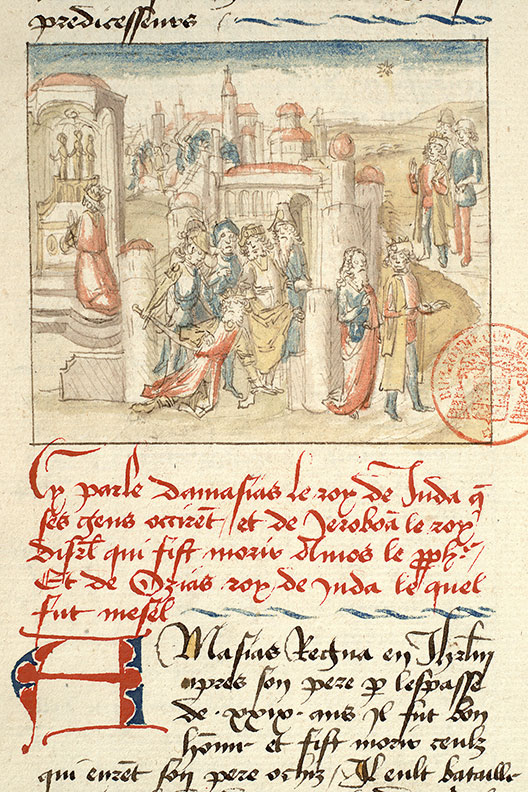 predicesseurs
Cy parle damasias le roy de Juda q̃
ses gens occirẽt / et de Jeroboã le roy
disrl̃ qui fist morir Amos le pph̃e /
Et de Ozias roy de Juda le quel
fut mesel
AMasias Regna en Jhrl̃m
apres son pere p lespasse
de .xxix. ans Il fut bon
hõme et fist morir ceulx
qui eurent son pere ochiz / Il eult bataille